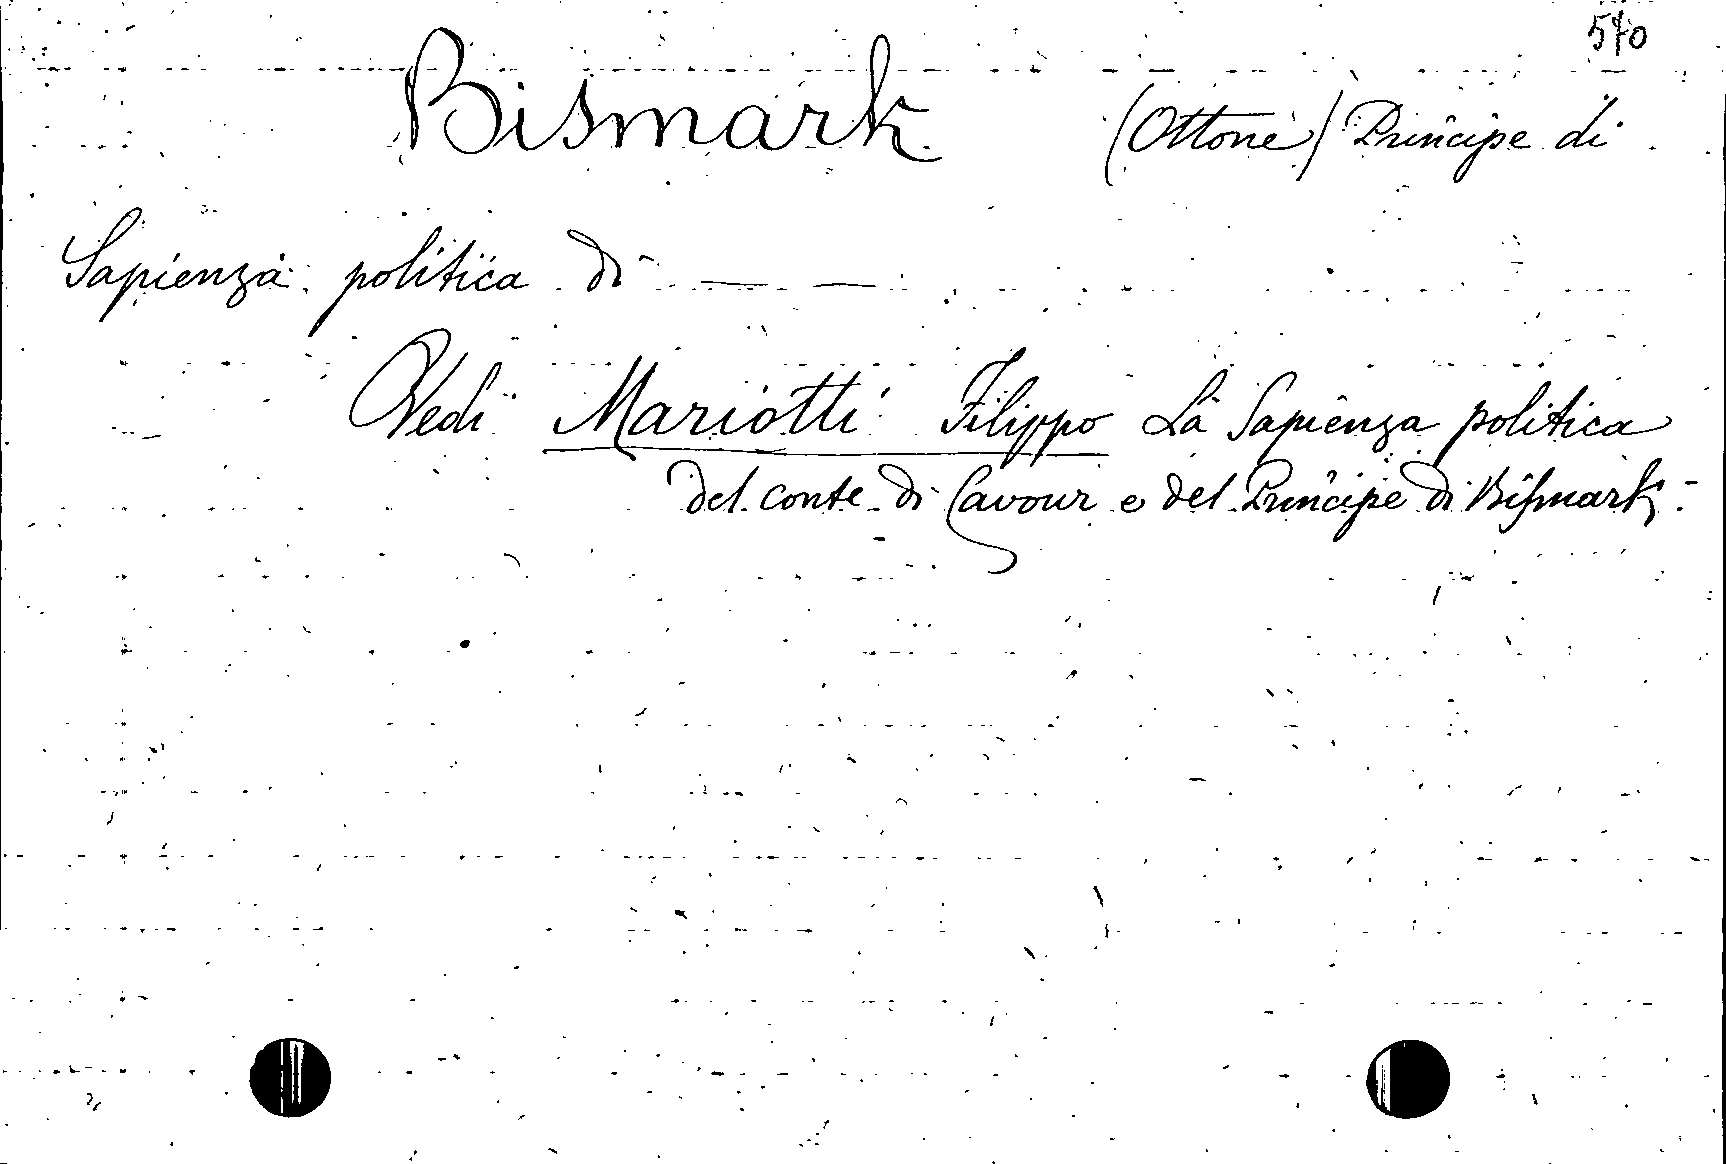 570
Bismark (Ottone) Principe di
Sapienza politica di — —
Vedi Mariotti Filippo La Sapienza politica
del conte di Cavour e del Principe di Bismark.